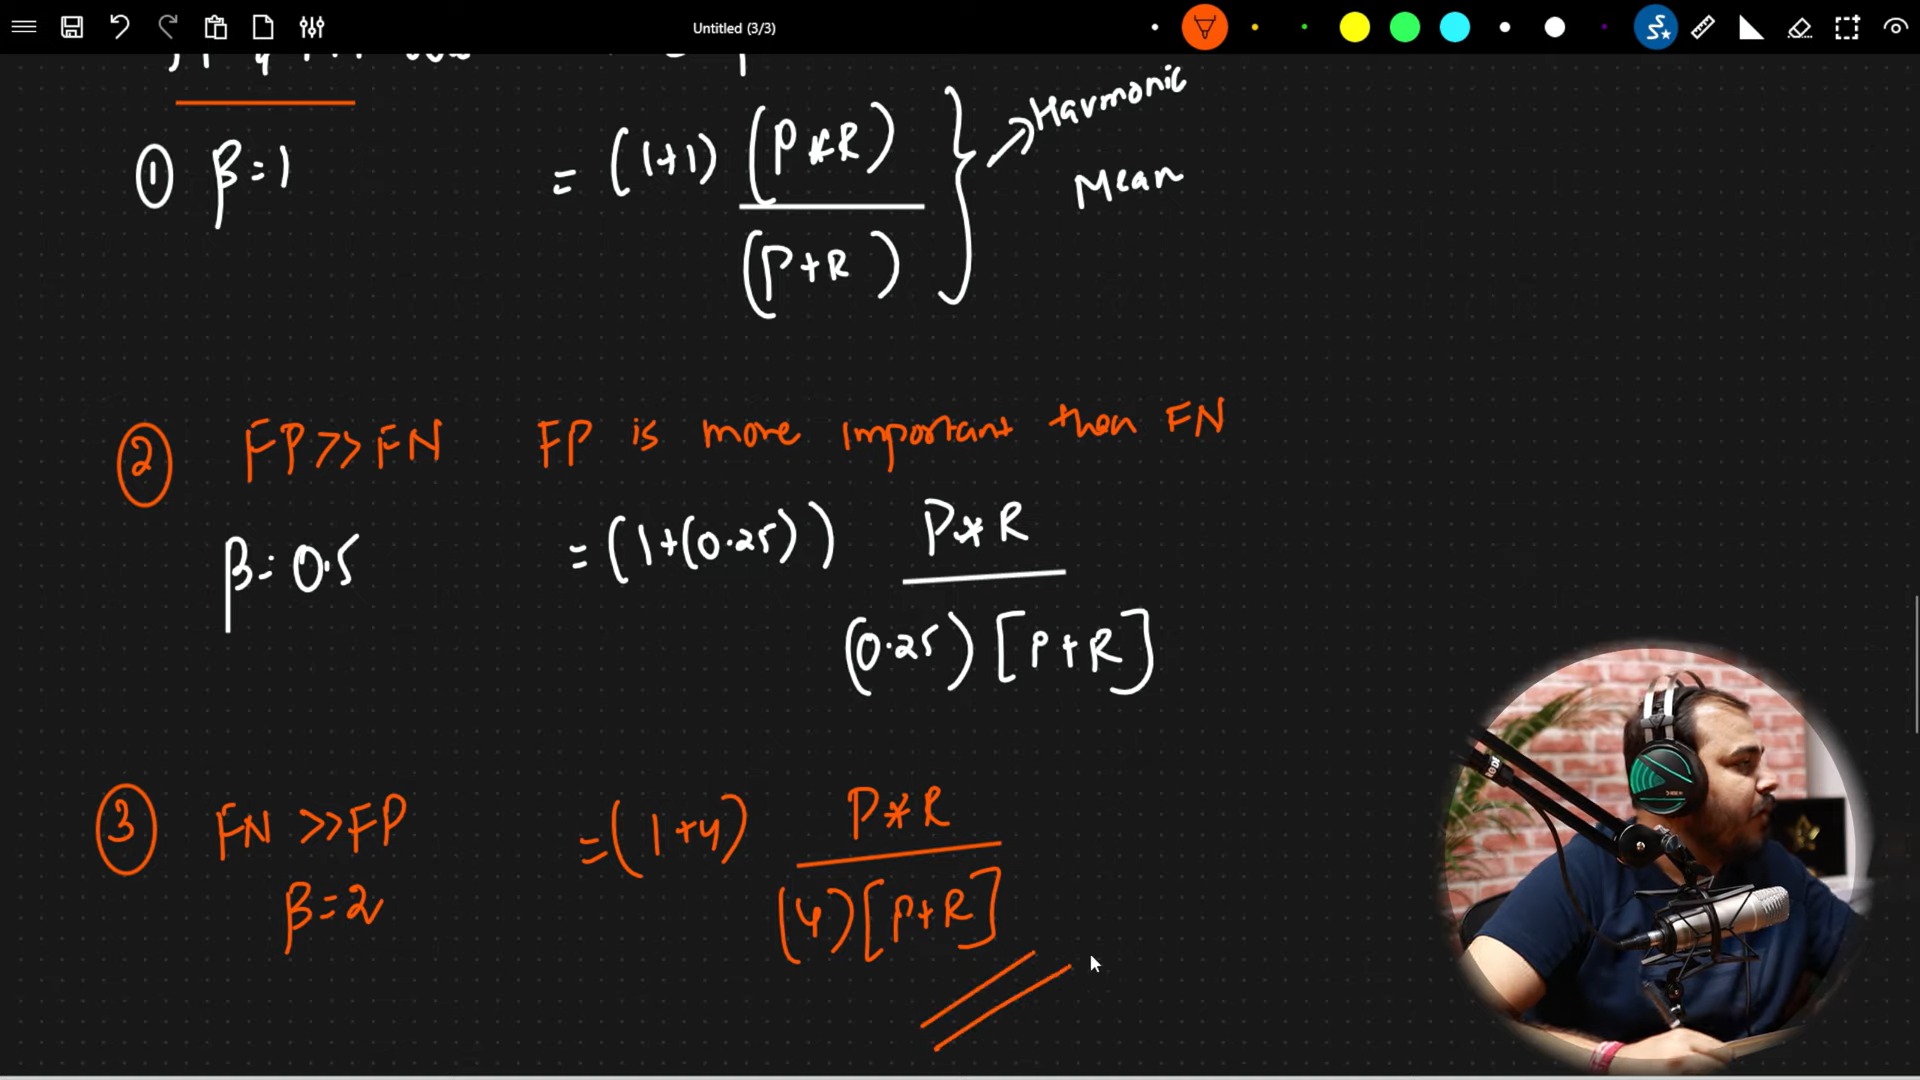 Untitled (3/3)
① β=1 = (1+1) (P*R) / (P+R) } → Harmonic Mean
② FP>>FN FP is more important then FN
β=0.5 = (1+(0.25)) P*R / (0.25)[P+R]
③ FN >>FP = (1+4) P*R / (4)[P+R]
β=2